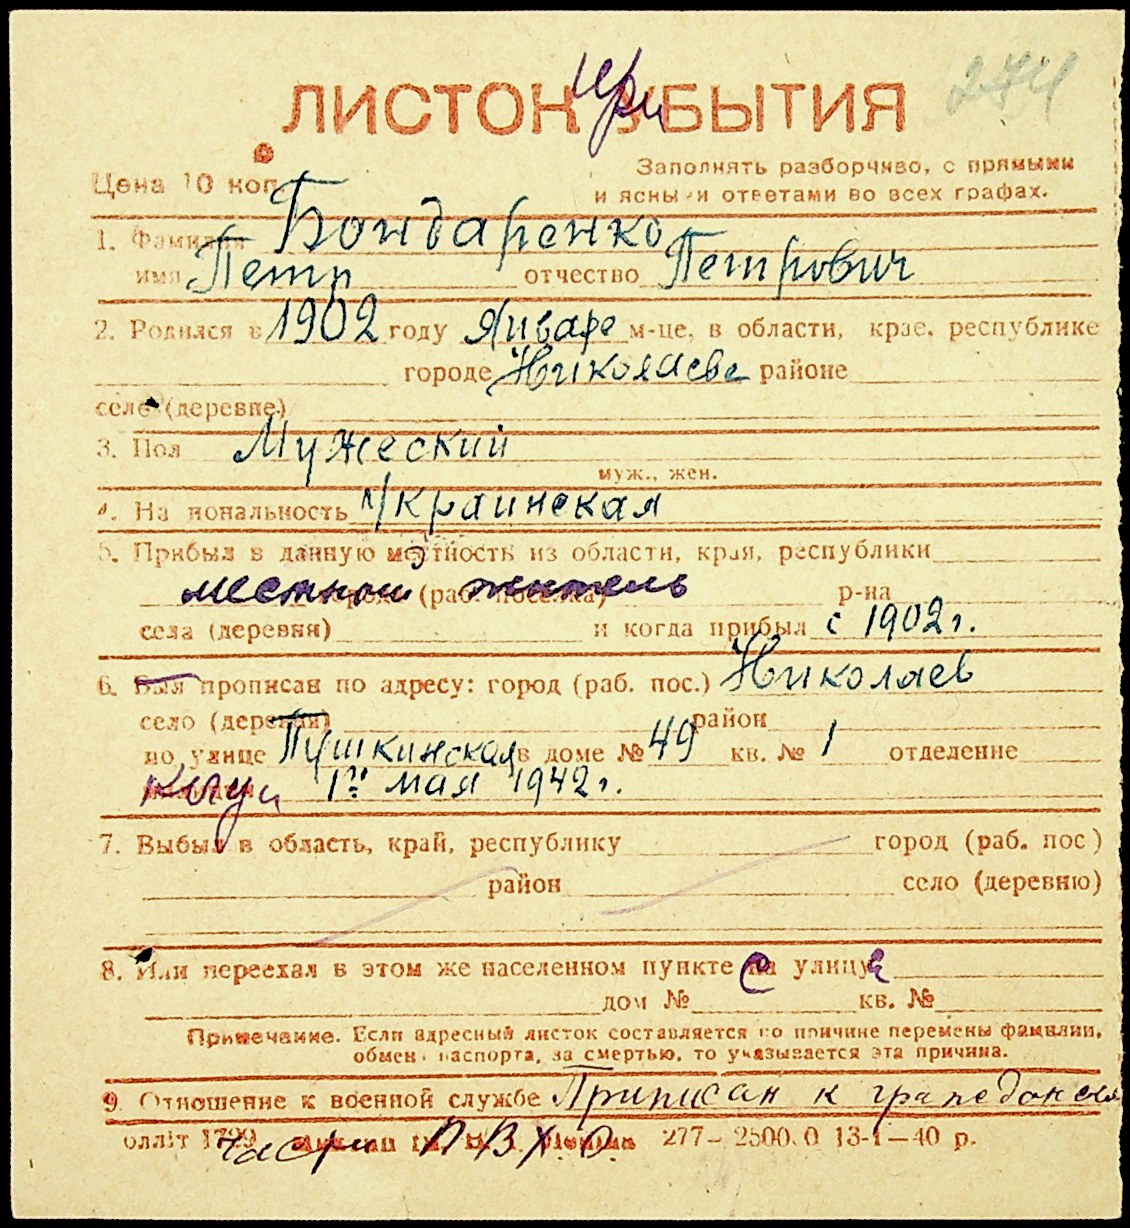 ЛИСТОК УБЫТИЯ
при
274
Цена 10 коп.
Заполнять разборчиво, с прямыми
и ясными ответами во всех графах.
1. Фамилия Бондаренко
имя Петр отчество Петрович
2. Родился в 1902 году Январе м-це, в области, крае, республике
городе Николаеве районе
селе (деревне)
3. Пол Мужеский
муж., жен.
4. Национальность Украинская
5. Прибыл в данную местность из области, края, республики
местный житель города (раб. поселка) р-на
села (деревня) и когда прибыл с 1902 г.
6. Был прописан по адресу: город (раб. пос.) Николаев
село (деревня) район
по улице Пушкинская в доме № 49 кв. № 1 отделение
1го мая 1942 г.
7. Выбыл в область, край, республику город (раб. пос)
район село (деревню)
8. Или переехал в этом же населенном пункте на улицу с
дом № кв. №
Примечание. Если адресный листок составляется по причине перемены фамилии,
обмена паспорта, за смертью, то указывается эта причина.
9. Отношение к военной службе Приписан к
части П.В.Х.О.
облліт 1799 277— 2500.0 13-1—40 р.